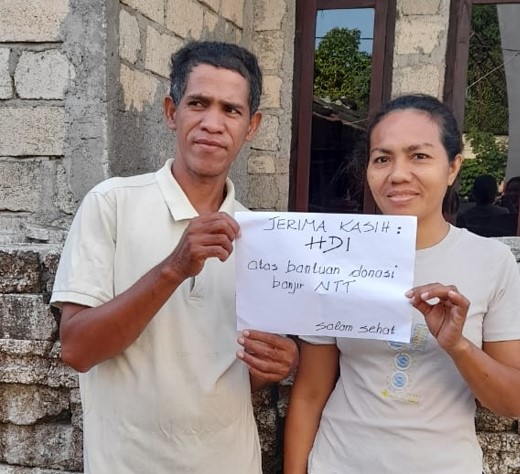 JERIMA KASIH :
HDI
atas bantuan donasi
banjir NTT
salam sehat